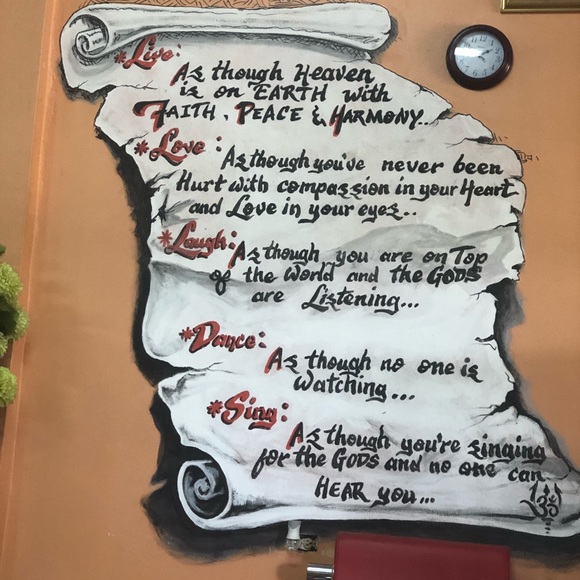 *Live:
As though Heaven
is on EARTH with
FAITH, PEACE & HARMONY..
*Love:
As though you've never been
Hurt with compassion in your Heart
and Love in your eyes..
*Laugh: As though you are on Top
of the World and the GODS
are Listening...
*Dance:
As though no one is
Watching...
*Sing:
As though you're singing
for the GODS and no one can
HEAR you...